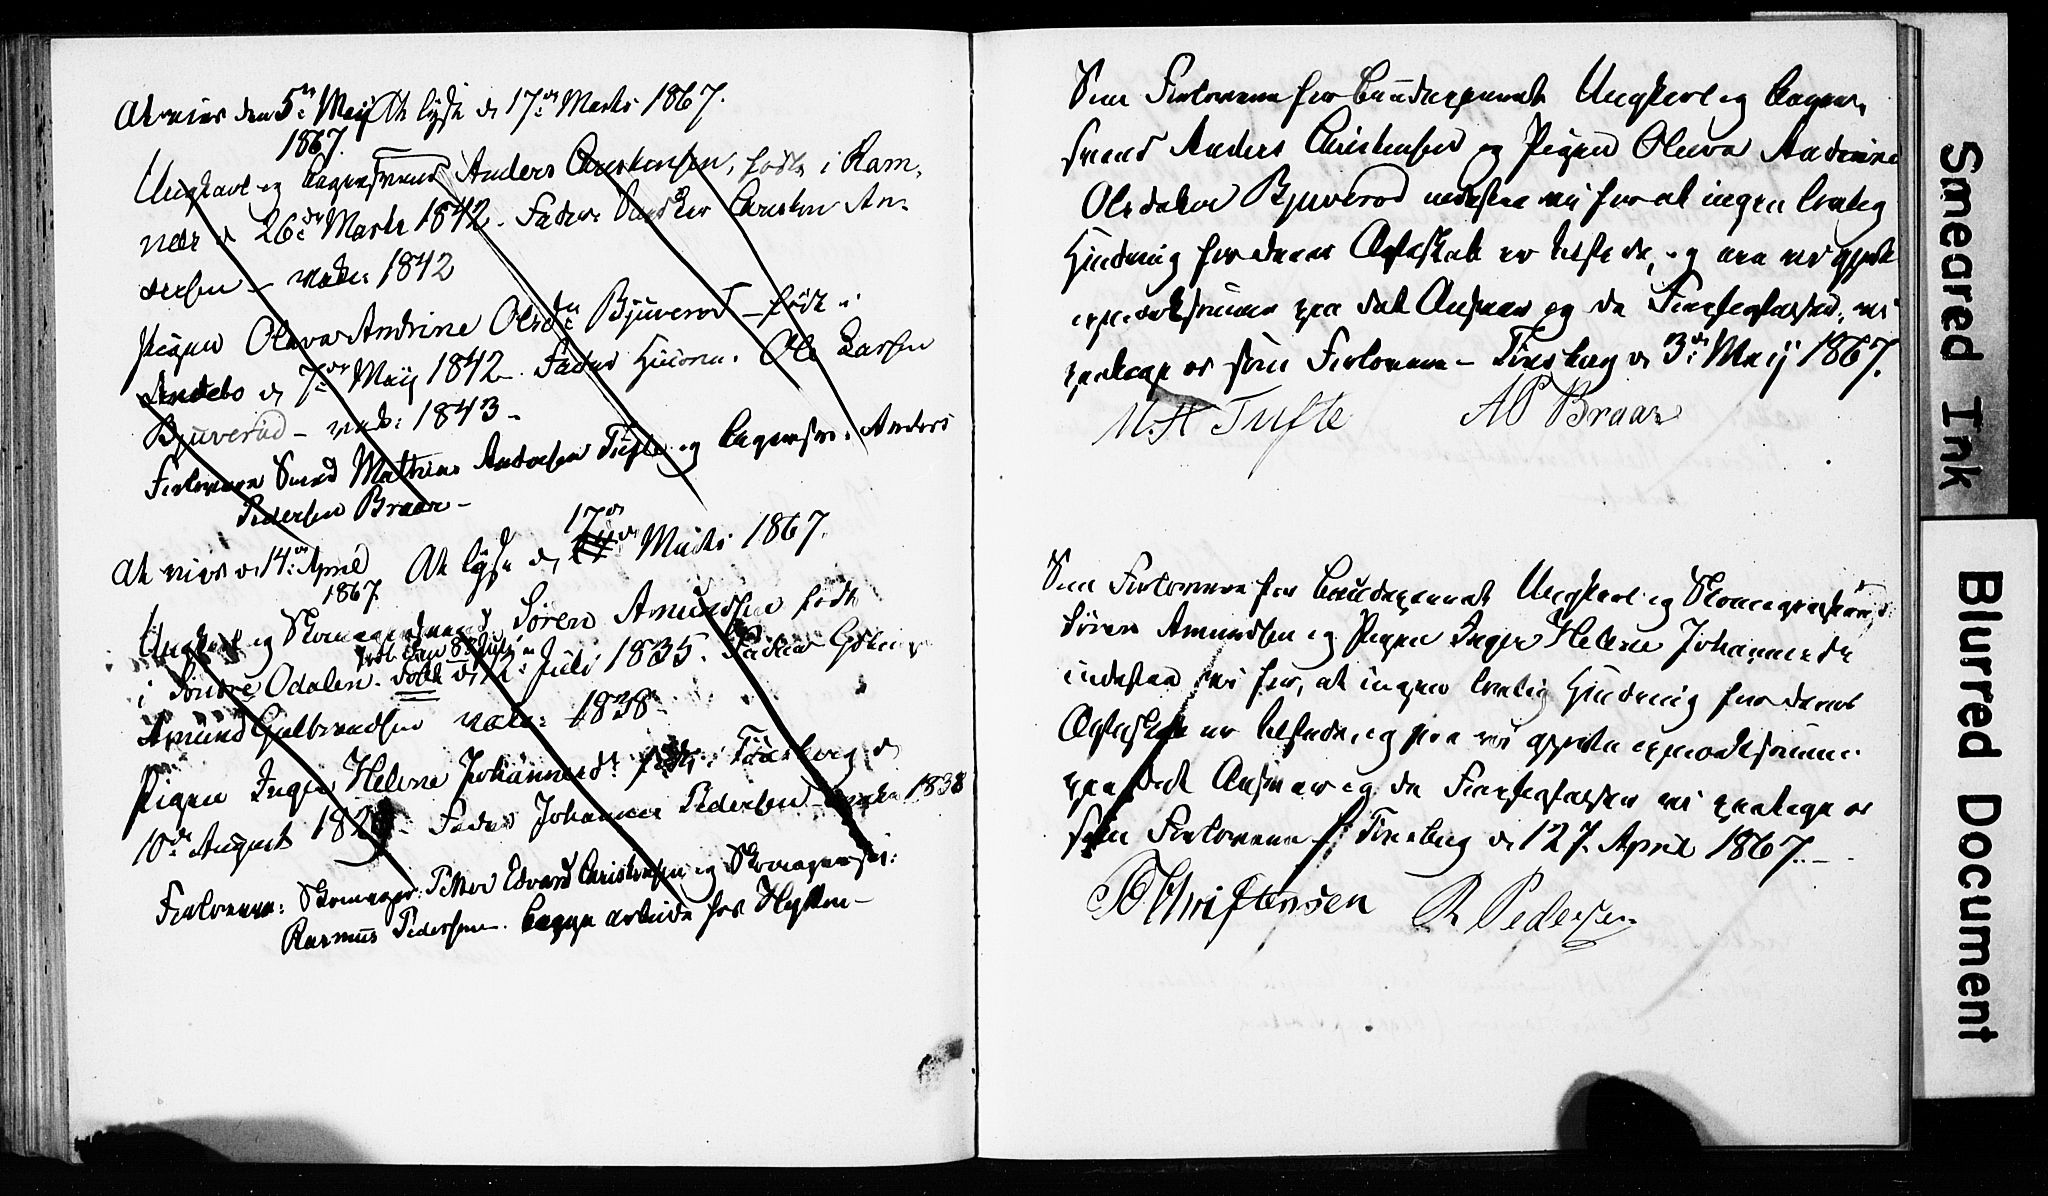 At vies den 5te Maij At lyse d 17de Marts 1867.
1867.
Ungkarl og Bagersvend Anders Christensen, født i Ram-
næs d 26de Marts 1842. Fader: Christen An-
dersen – vacc: 1842
Pigen Oleva Andrine Olsdtr Bjuverød – født i
Andebo d 7de Maij 1842. Fader Husm: Ole Larsen
Bjuverød – vacc: 1843 –
Forlovere Smed Mathias Andersen Tufte og Bagersv: Anders
Pedersen Braar –
At vies d 14de April At lyse d 17de Marts 1867.
1867.
Ungkarl og Skomagersvend Søren Amundsen født
i Søndre Odalen. døbt d 12 Juli 1835. Fader
Amund Gulbrandsen vacc: 1838
Pigen Inger Helene Johannesdr født i Tønsberg d
10de August Fader Johannes Pedersen – vacc 1838
Forlovere: Skomager Petter Edvard Christensen og Skomagersv:
Rasmus Pedersen. Begge arbeide for Hytten –
Som Forlovere for Brudeparret Ungkarl og Bager-
svend Anders Christensen og Pigen Oleva Andrine
Olsdatter Bjuverød indestaa vi for at ingen lovlig
Hindring for deres Ægteskab er tilstede, og ere vi
opmærksomme paa det Ansvar og de Forpligtelser, vi
paatage os som Forlovere – Tønsberg d 3de Maij 1867.
M.A Tufte AP Braar
Som Forlovere for Brudeparret Ungkarl og Skomagersvend
Søren Amundsen og Pigen Inger Helene Johannesdr
indestaa vi for, at ingen lovlig Hindring for deres
Ægteskab er tilstede, og ere vi opmærksomme
paa det Ansvar og de Forpligtelser vi paatage os
som Forlovere Tønsberg d 12 April 1867. –
Christensen R Pedersen
Smeared Ink
Blurred Document